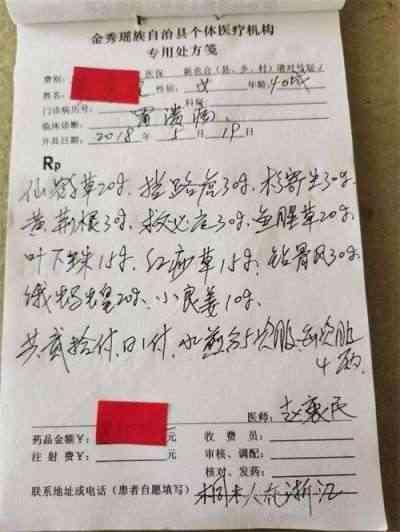 金秀瑶族自治县个体医疗机构
专用处方笺
费别: 医保 新农合(县、乡、村)请对号划√
姓名: 性别: 女 年龄: 40岁
门诊病历号: 科
临床诊断: 胃溃疡
开具日期: 2018 年 5 月 19 日
Rp
仙鹤草20g、拦路虎30g、桑寄生30g、
黄荆根30g、救必应30g、鱼腥草20g、
叶下珠15g、红 草15g、钻骨风30g、
饿蚂蝗20g、小良姜10g、
共贰拾付、日1付、水煎分5次服、每次服
4两
医师: 赵
药品金额¥: 元 收 费 员:
注 射 费¥: 元 审核、调配:
核对、发药:
联系地址或电话(患者自愿填写) 浙江